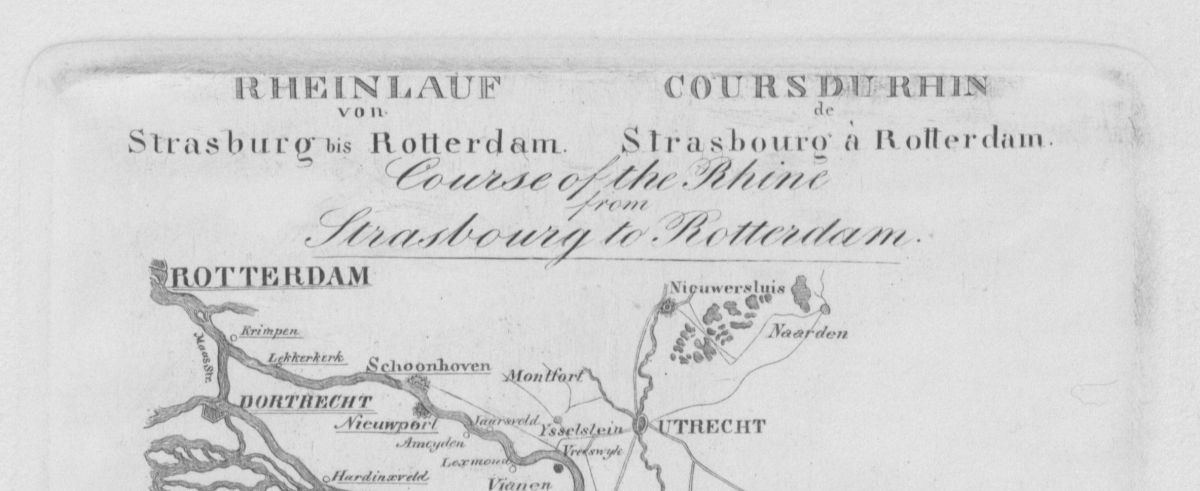 RHEINLAUF
von
Strasburg bis Rotterdam.
COURS DU RHIN
de
Strasbourg à Rotterdam.
Course of the Rhine
from
Strasbourg to Rotterdam.
ROTTERDAM
Nieuwersluis
Naarden
Krimpen
Maas Str.
Lekkerkerk
Schoonhoven
Montfort
DORTRECHT
Nieuwport
Jaarsveld
Ysselstein
UTRECHT
Ameyden
Vreeswyk
Lexmond
Hardinxveld
Vianen